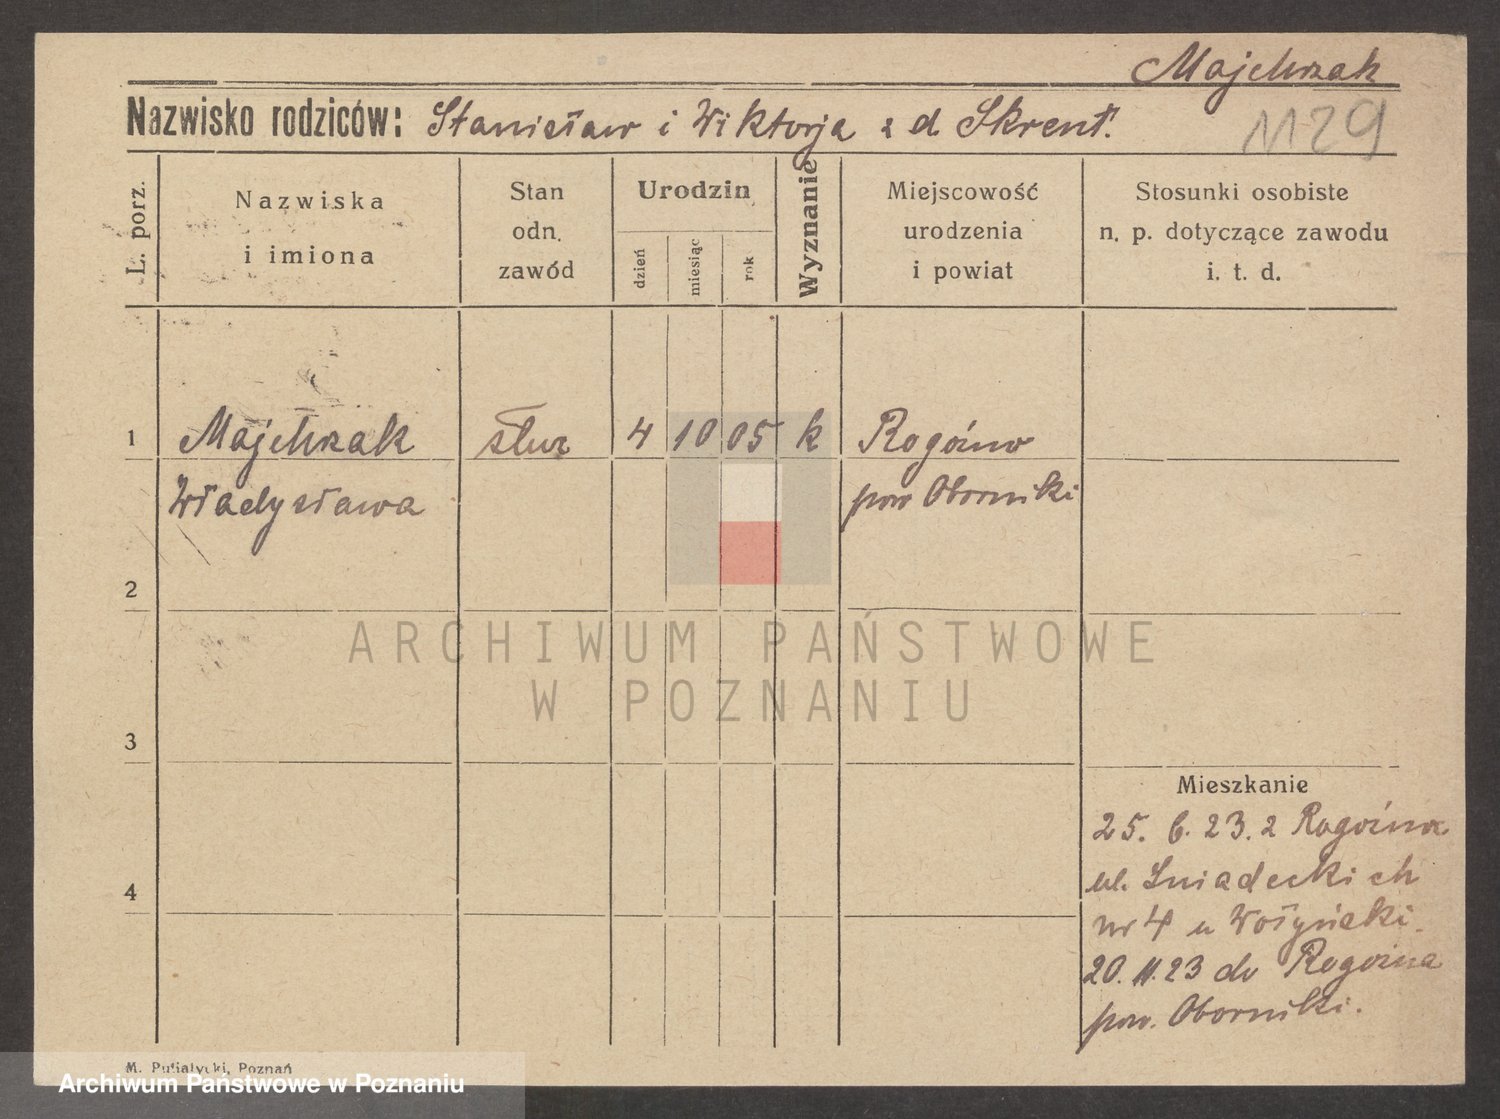 Majchrzak
Nazwisko rodziców: Stanisław i Wiktorja z d Skrent.
1129
L. porz.
Nazwiska
i imiona
Stan
odn.
zawód
Urodzin
dzień
miesiąc
rok
Wyznanie
Miejscowość
urodzenia
i powiat
Stosunki osobiste
n. p. dotyczące zawodu
i. t. d.
1 Majchrzak służ 4 10 05 k Rogoźno
Władysława pow Oborniki
2
ARCHIWUM PAŃSTWOWE
W POZNANIU
3
Mieszkanie
25. 6. 23. z Rogoźna
4
ul. Śniadeckich
nr 4 u Wołyński.
20. 11. 23 do Rogoźna
pow. Oborniki.
M. Putiatycki, Poznań
Archiwum Państwowe w Poznaniu